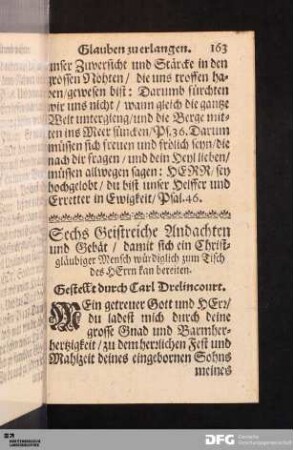 Glauben zu erlangen. 163
unser Zuversicht und Stärcke in den
grossen Nöhten / die uns troffen ha-
ben / gewesen bist: Darumb fürchten
wir uns nicht / wann gleich die gantze
Welt untergieng / und die Berge mit-
ten ins Meer süncken / Ps. 36. Darum
müssen sich freuen und frölich seyn / die
nach dir fragen / und dein Heyl lieben /
müssen allwegen sagen: HERR / sey
hochgelobt / du bist unser Helffer und
Erretter in Ewigkeit / Psal. 46.
Sechs Geistreiche Andachten
und Gebät / damit sich ein Christ-
gläubiger Mensch würdiglich zum Tisch
des HErrn kan bereiten.
Gestellt durch Carl Drelincourt.
MEin getreuer Gott und HErr /
du ladest mich durch deine
grosse Gnad und Barmher-
hertzigkeit / zu dem herlichen Fest und
Mahlzeit deines eingebornen Sohns
meines
DFG